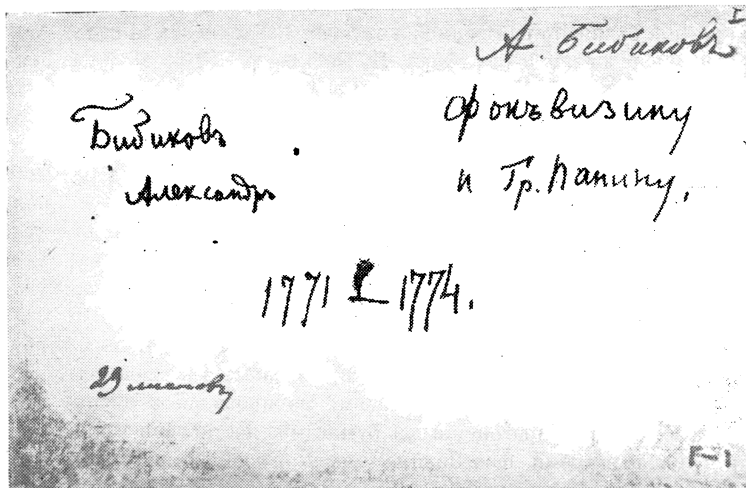 I
А. Бибиковъ
Бибиковъ
Александръ
Фонъвизину
и Гр. Панину.
1771 — 1774.
29 листовъ
F-1